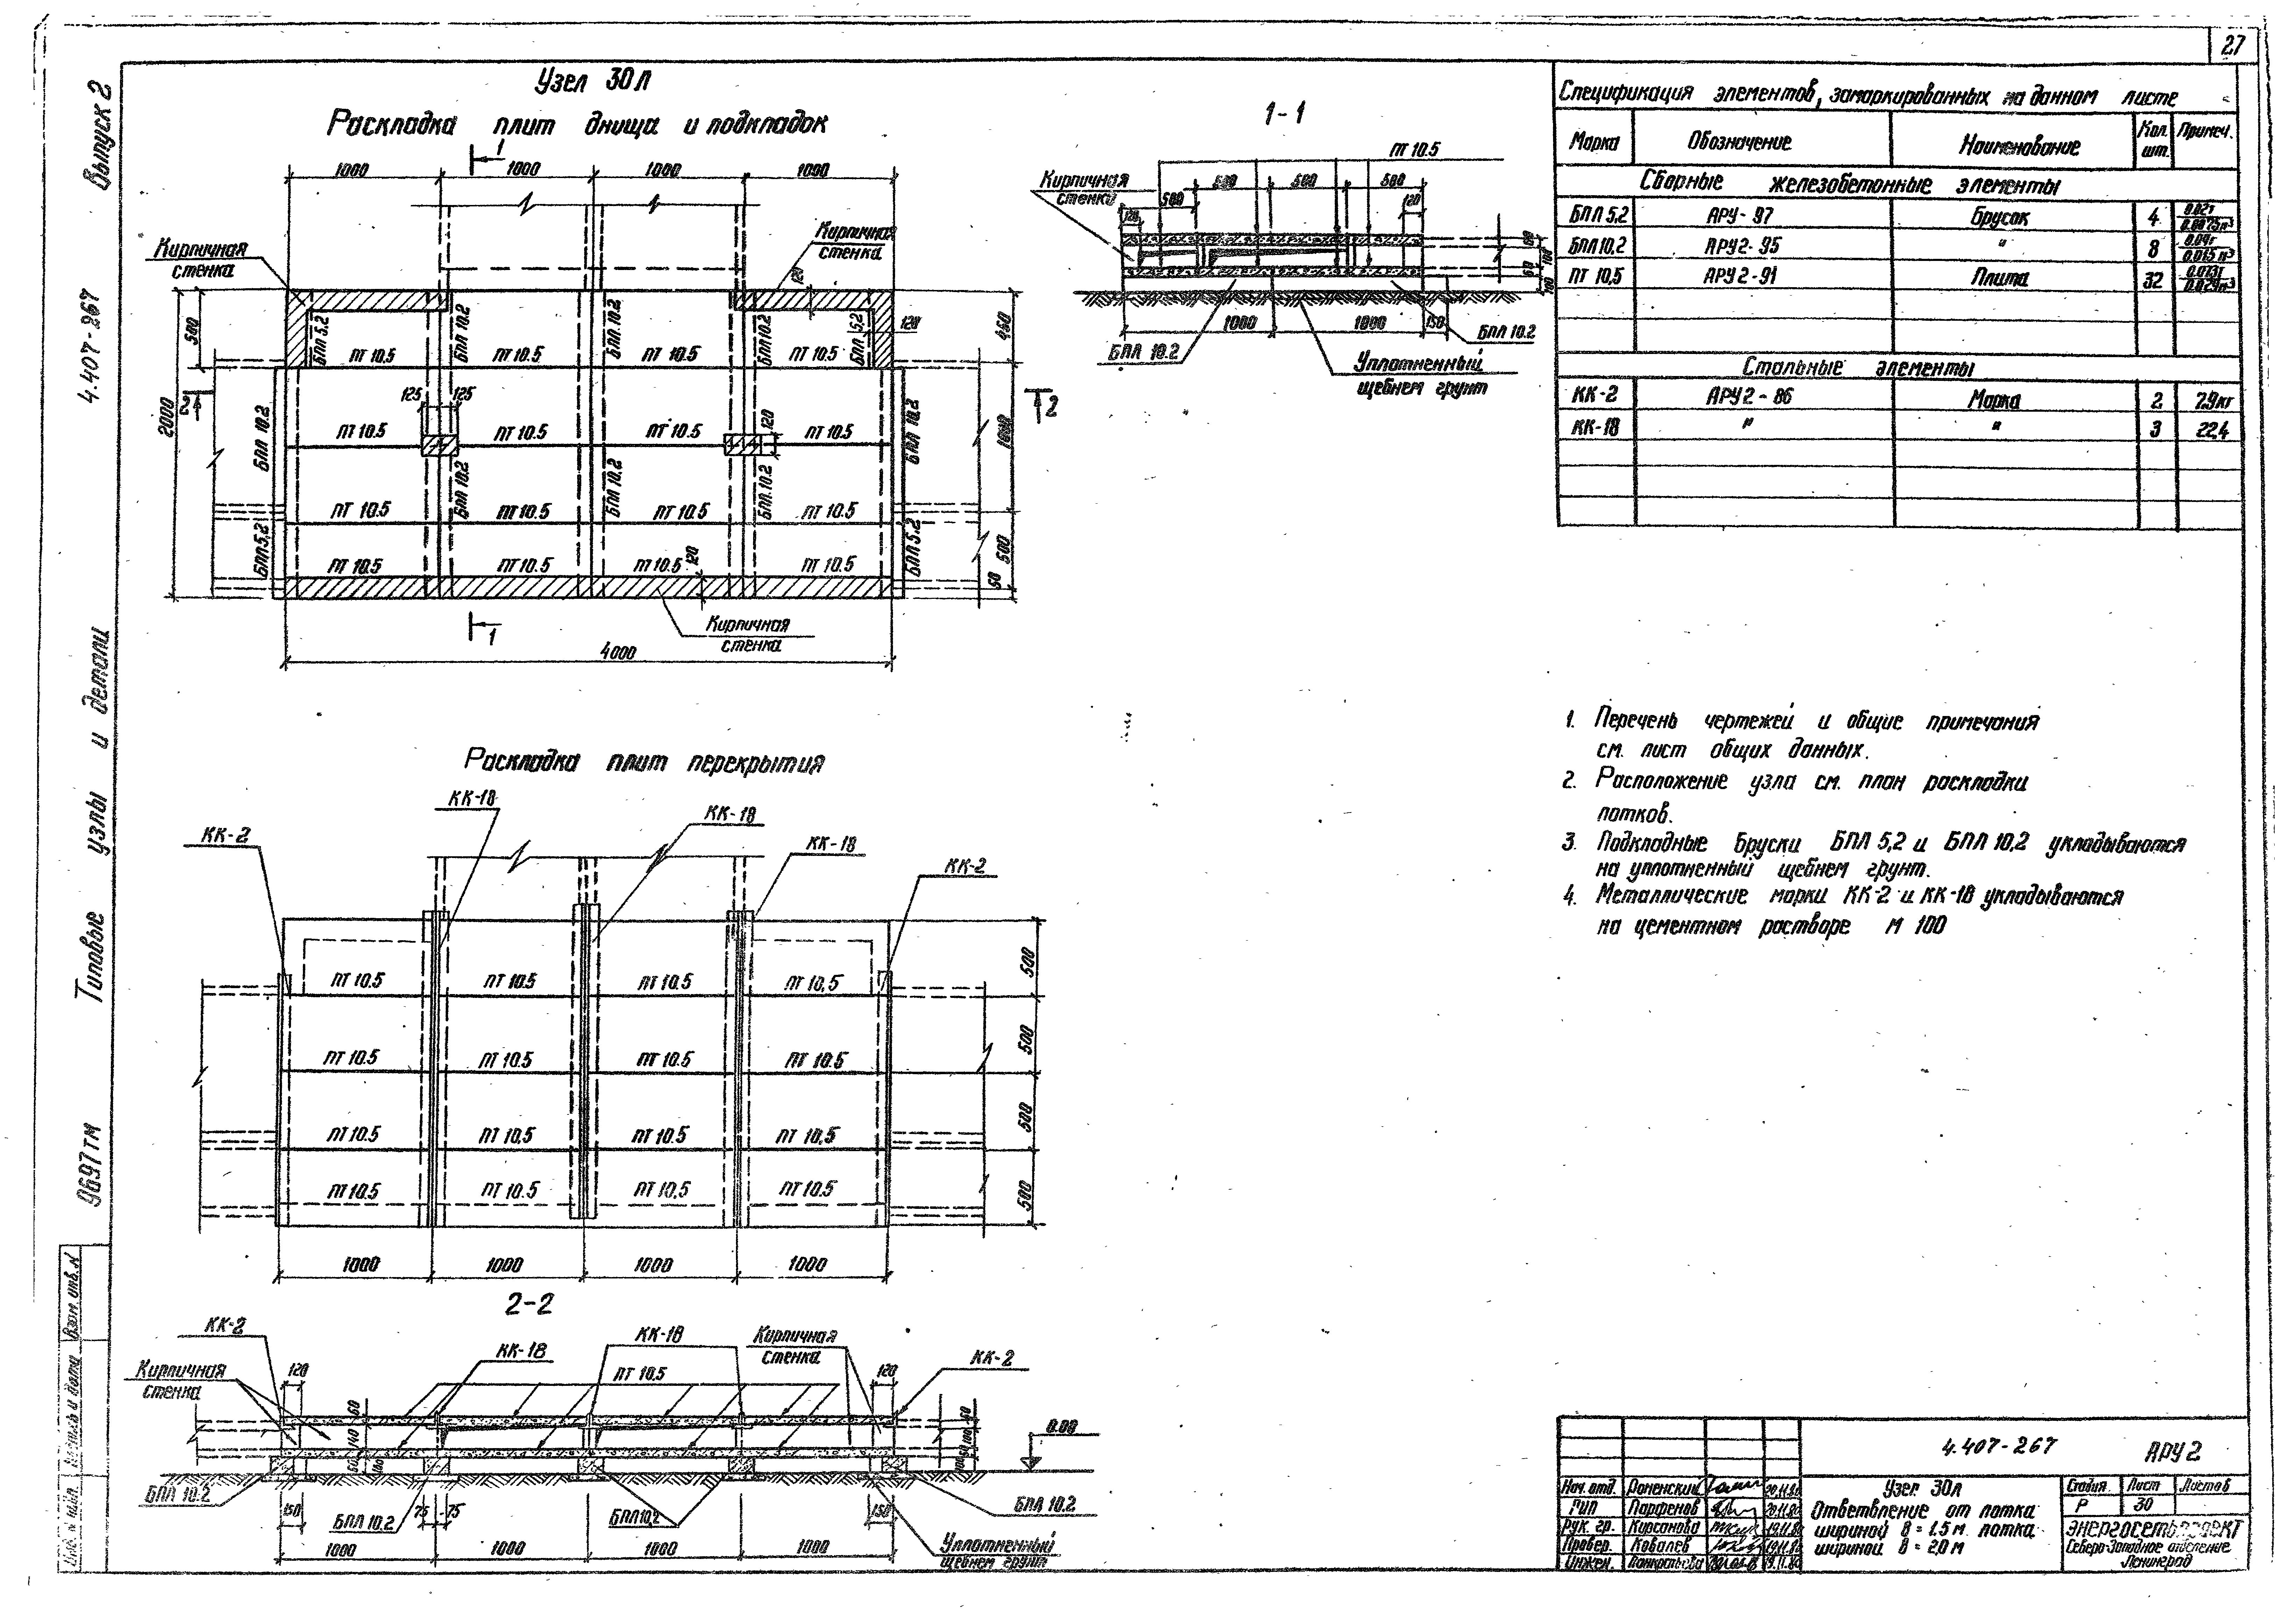 27
Выпуск 2
4.407-267
Типовые узлы и детали
9697тм
Взам. инв. N
Подпись и дата
Узел 30л
Раскладка плит днища и подкладок
1
1000 1000 1000 1000
Кирпичная
стенка
Кирпичная
стенка
120
2000
500
БПЛ 5.2
БПЛ 10.2
БПЛ 10.2
БПЛ 10.2
БПЛ 5.2
120
450
ПТ 10.5 ПТ 10.5 ПТ 10.5 ПТ 10.5
2
125 125
120
2
БПЛ 10.2
ПТ 10.5 ПТ 10.5 ПТ 10.5 ПТ 10.5
БПЛ 10.2
1000
БПЛ 10.2
БПЛ 10.2
БПЛ 10.2
ПТ 10.5 ПТ 10.5 ПТ 10.5 ПТ 10.5
БПЛ 5,2
БПЛ 5.2
500
50
ПТ 10.5 ПТ 10.5 ПТ 10.5 ПТ 10.5
120
1
Кирпичная
стенка
4000
1-1
ПТ 10.5
Кирпичная
стенка
500 500 500
500
120
120
60
100
60
100
1000 1000 150
БПЛ 10.2
БПЛ 10.2
Уплотненный
щебнем грунт
Раскладка плит перекрытия
КК-18
КК-18
КК-2
КК-18
КК-2
ПТ 10.5 ПТ 10.5 ПТ 10.5 ПТ 10,5
500
ПТ 10.5 ПТ 10.5 ПТ 10.5 ПТ 10.5
500
ПТ 10.5 ПТ 10,5 ПТ 10.5 ПТ 10,5
500
ПТ 10.5 ПТ 10.5 ПТ 10,5 ПТ 10.5
500
1000 1000 1000 1000
2-2
КК-2
КК-18
КК-18
Кирпичная
стенка
КК-2
Кирпичная
стенка
120
ПТ 10.5
120
60
140
50
100
0.00
БПЛ 10.2
150
БПЛ 10.2
75 75
БПЛ 10,2
150
БПЛ 10.2
Уплотненный
щебнем грунт
1000 1000 1000 1000
Спецификация элементов, замаркированных на данном листе
Марка Обозначение Наименование Кол. шт. Примеч.
Сборные железобетонные элементы
БПЛ 5.2 АРУ- 97 Брусок 4 0.02т 0.0075м³
БПЛ 10.2 АРУ2-95 " 8 0.04т 0.015 м³
ПТ 10,5 АРУ2-91 Плита 32 0.073т 0.029м³
Стальные элементы
КК-2 АРУ2-86 Марка 2 7.9кг
КК-18 " " 3 22,4
1. Перечень чертежей и общие примечания
см. лист общих данных.
2. Расположение узла см. план раскладки
лотков.
3. Подкладные бруски БПЛ 5,2 и БПЛ 10,2 укладываются
на уплотненный щебнем грунт.
4. Металлические марки КК-2 и КК-18 укладываются
на цементном растворе М 100
4.407-267 АРУ2
Нач. отд. Роменский 20.11.80
ГИП Парфенов 20.11.80
Рук. гр. Кирсанова 19.11.80
Провер. Ковалев 19.11.80
Инжен. 19.11.80
Узел 30л
Ответвление от лотка
шириной В = 1.5 м лотка
шириной В = 2,0 м
Стадия Лист Листов
Р 30
ЭНЕРГОСЕТЬПРОЕКТ
Северо-Западное отделение
Ленинград